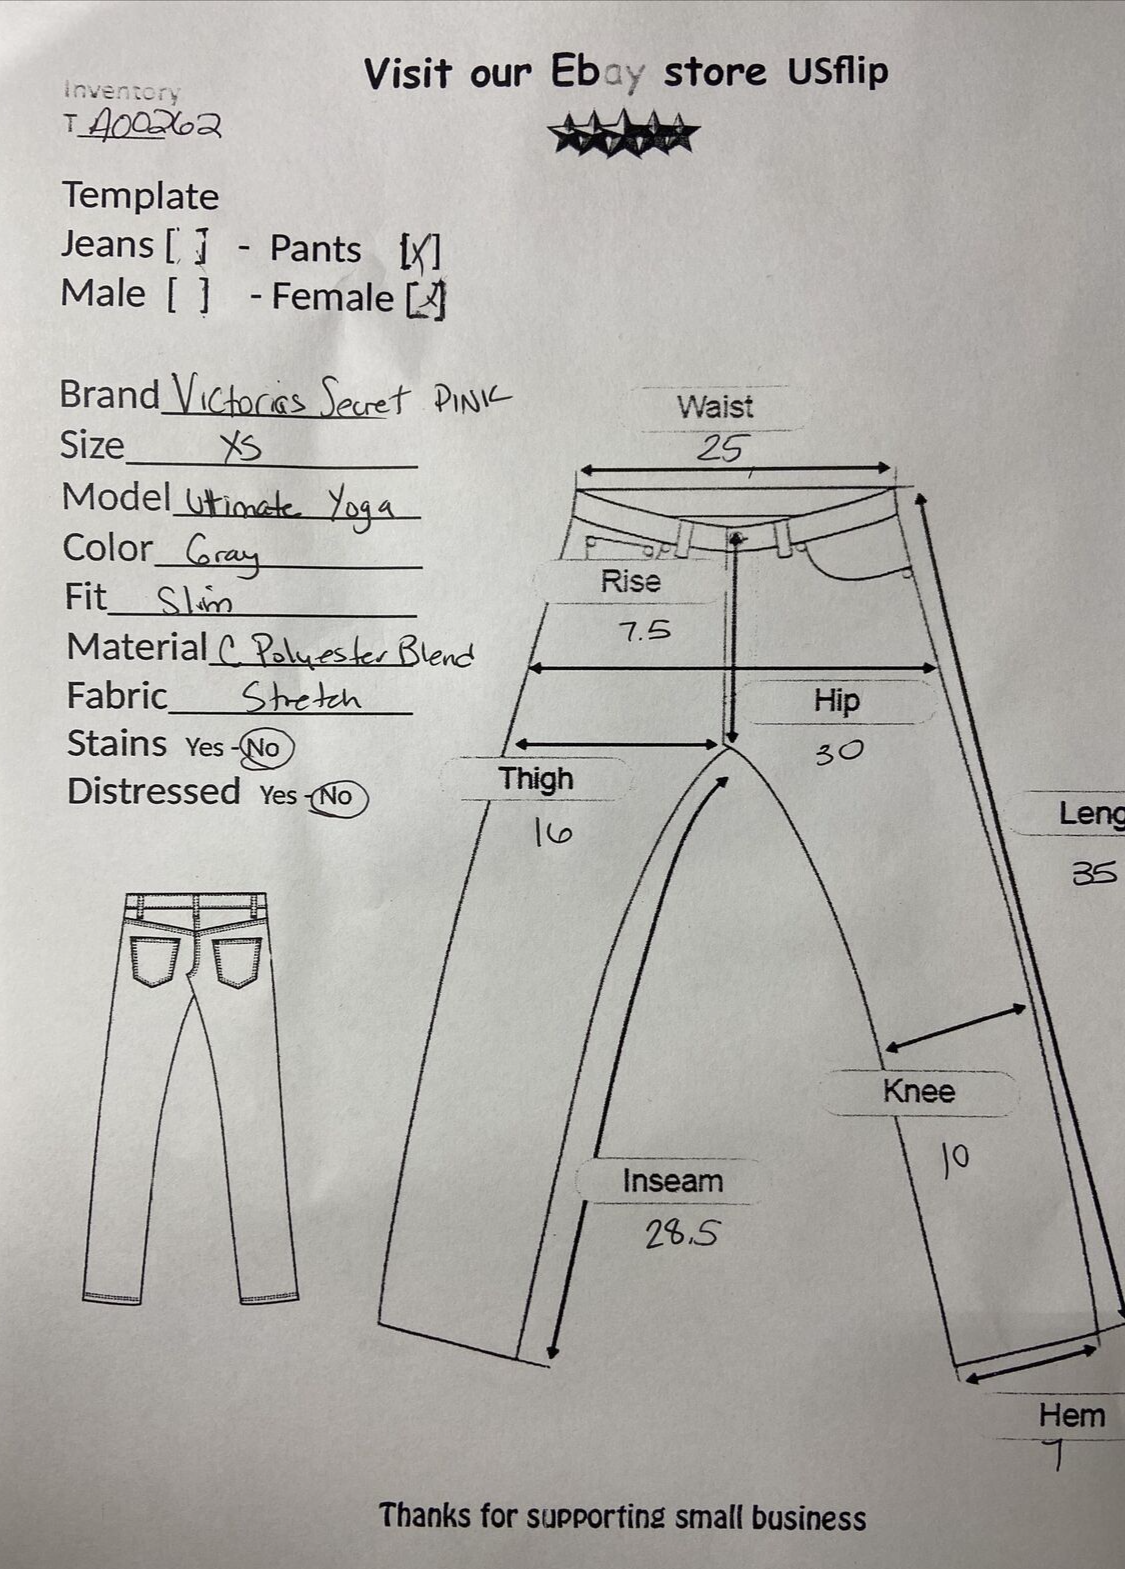 Visit our Ebay store USflip
Inventory
T A00262
Template
Jeans [ ] - Pants [X]
Male [ ] - Female [X]
Brand Victorias Secret PINK
Size XS
Model Utimate Yoga
Color Gray
Fit Slim
Material C Polyester Blend
Fabric Stretch
Stains Yes - No
Distressed Yes - No
Waist
25
Rise
7.5
Hip
30
Thigh
16
Leng
35
Knee
10
Inseam
28.5
Hem
7
Thanks for supporting small business